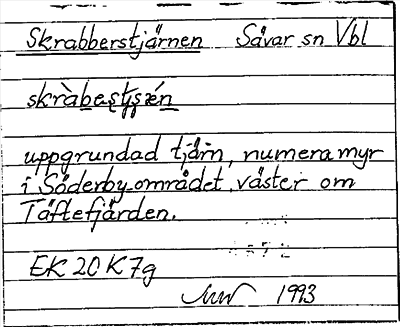 Skrabberstjärnen Sävar sn Vbl
skràbestjsǽn
uppgrundad tjärn, numera myr
i Söderby-området väster om
Täftefjärden.
EK 20 K 7g
1993